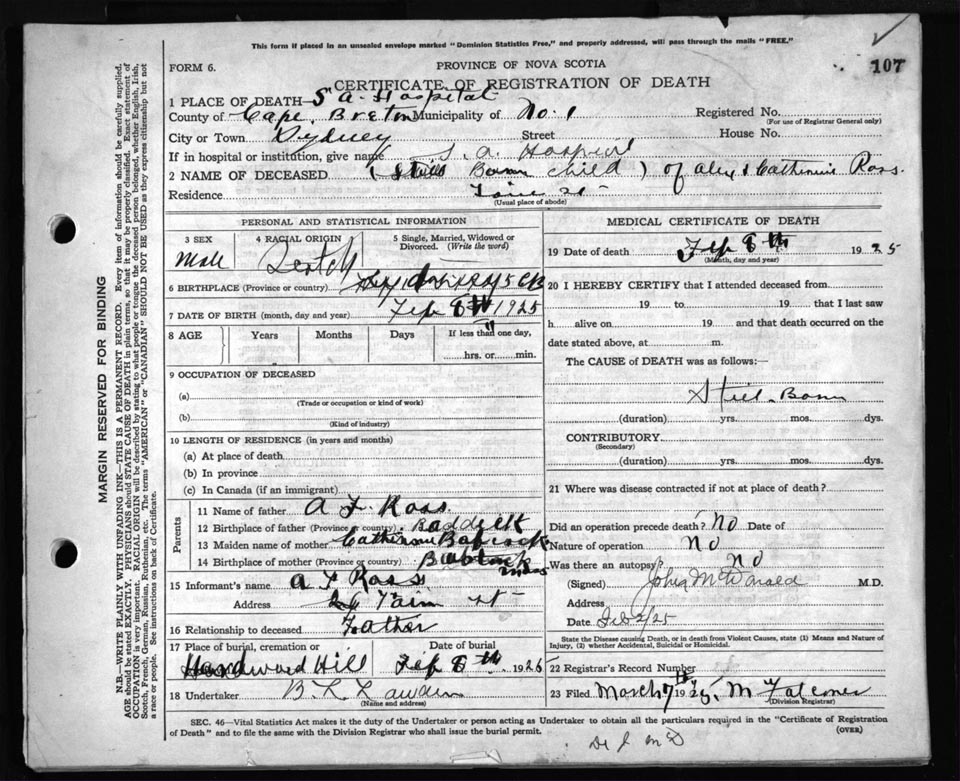 This form if placed in an unsealed envelope marked "Dominion Statistics Free," and properly addressed, will pass through the mails "FREE."
FORM 6.
PROVINCE OF NOVA SCOTIA
107
CERTIFICATE OF REGISTRATION OF DEATH
1 PLACE OF DEATH— S A Hospital
County of Cape Breton Municipality of No. 1 Registered No.
(For use of Registrar General only)
City or Town Sydney Street House No.
If in hospital or institution, give name S. A. Hospital
2 NAME OF DECEASED (Still Born child) of Alex & Catherine Ross.
Residence St
(Usual place of abode)
PERSONAL AND STATISTICAL INFORMATION
3 SEX 4 RACIAL ORIGIN 5 Single, Married, Widowed or Divorced. (Write the word)
Male Scotch
6 BIRTHPLACE (Province or country) Sydney C B
7 DATE OF BIRTH (month, day and year) Feb 8th 1925
8 AGE Years Months Days If less than one day,
hrs. or min.
9 OCCUPATION OF DECEASED
(a)
(Trade or occupation or kind of work)
(b)
(Kind of industry)
10 LENGTH OF RESIDENCE (in years and months)
(a) At place of death
(b) In province
(c) In Canada (if an immigrant)
Parents
11 Name of father A F Ross
12 Birthplace of father (Province or country) Baddeck
13 Maiden name of mother Catherine Babcock
14 Birthplace of mother (Province or country) Mass
15 Informant's name A F Ross
Address St
16 Relationship to deceased Father
17 Place of burial, cremation or Date of burial
Hardwood Hill Feb 8th 1926
18 Undertaker
(Name and address)
MEDICAL CERTIFICATE OF DEATH
19 Date of death Feb 8th 1925
(Month, day and year)
20 I HEREBY CERTIFY that I attended deceased from
19 to 19 that I last saw
h alive on 19 and that death occurred on the
date stated above, at m.
The CAUSE of DEATH was as follows:—
Still Born
(duration) yrs. mos. dys.
CONTRIBUTORY
(Secondary)
(duration) yrs. mos. dys.
21 Where was disease contracted if not at place of death?
Did an operation precede death? no Date of
Nature of operation no
Was there an autopsy? no
(Signed) John McDonald M.D.
Address
Date
State the Disease causing Death, or in death from Violent Causes, state (1) Means and Nature of Injury, (2) whether Accidental, Suicidal or Homicidal.
22 Registrar's Record Number
23 Filed March 7 19 M Falconer
(Division Registrar)
SEC. 46—Vital Statistics Act makes it the duty of the Undertaker or person acting as Undertaker to obtain all the particulars required in the "Certificate of Registration
of Death" and to file the same with the Division Registrar who shall issue the burial permit.
(OVER)
Dr J McD
MARGIN RESERVED FOR BINDING
N.B.—WRITE PLAINLY WITH UNFADING INK—THIS IS A PERMANENT RECORD. Every item of information should be carefully supplied.
AGE should be stated EXACTLY. PHYSICIANS should STATE CAUSE OF DEATH in plain terms, so that it may be properly classified. Exact statement of
OCCUPATION is very important. RACIAL ORIGIN will be described by stating to what people or tongue the deceased person belonged, whether English, Irish,
Scotch, French, German, Russian, Ruthenian, etc. The terms "AMERICAN" or "CANADIAN" SHOULD NOT BE USED as they express citizenship but not
a race or people. See instructions on back of Certificate.